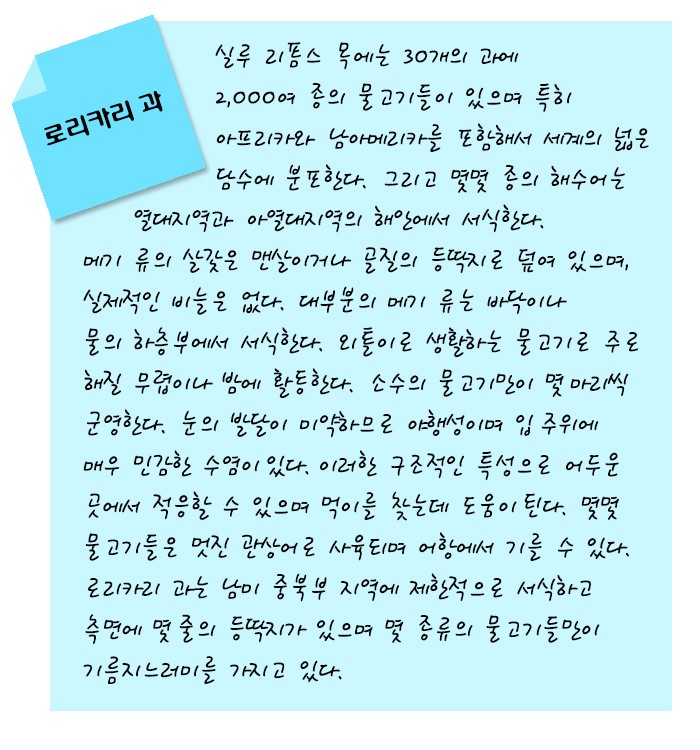 로리카리 과
실루 리폼스 목에는 30개의 과에
2,000여 종의 물고기들이 있으며 특히
아프리카와 남아메리카를 포함해서 세계의 넓은
담수에 분포한다. 그리고 몇몇 종의 해수어는
열대지역과 아열대지역의 해안에서 서식한다.
메기 류의 살갗은 맨살이거나 골질의 등딱지로 덮여 있으며,
실제적인 비늘은 없다. 대부분의 메기 류는 바닥이나
물의 하층부에서 서식한다. 외톨이로 생활하는 물고기로 주로
해질 무렵이나 밤에 활동한다. 소수의 물고기만이 몇 마리씩
군영한다. 눈의 발달이 미약하므로 야행성이며 입 주위에
매우 민감한 수염이 있다. 이러한 구조적인 특성으로 어두운
곳에서 적응할 수 있으며 먹이를 찾는데 도움이 된다. 몇몇
물고기들은 멋진 관상어로 사육되며 어항에서 기를 수 있다.
로리카리 과는 남미 중북부 지역에 제한적으로 서식하고
측면에 몇 줄의 등딱지가 있으며 몇 종류의 물고기들만이
기름지느러미를 가지고 있다.